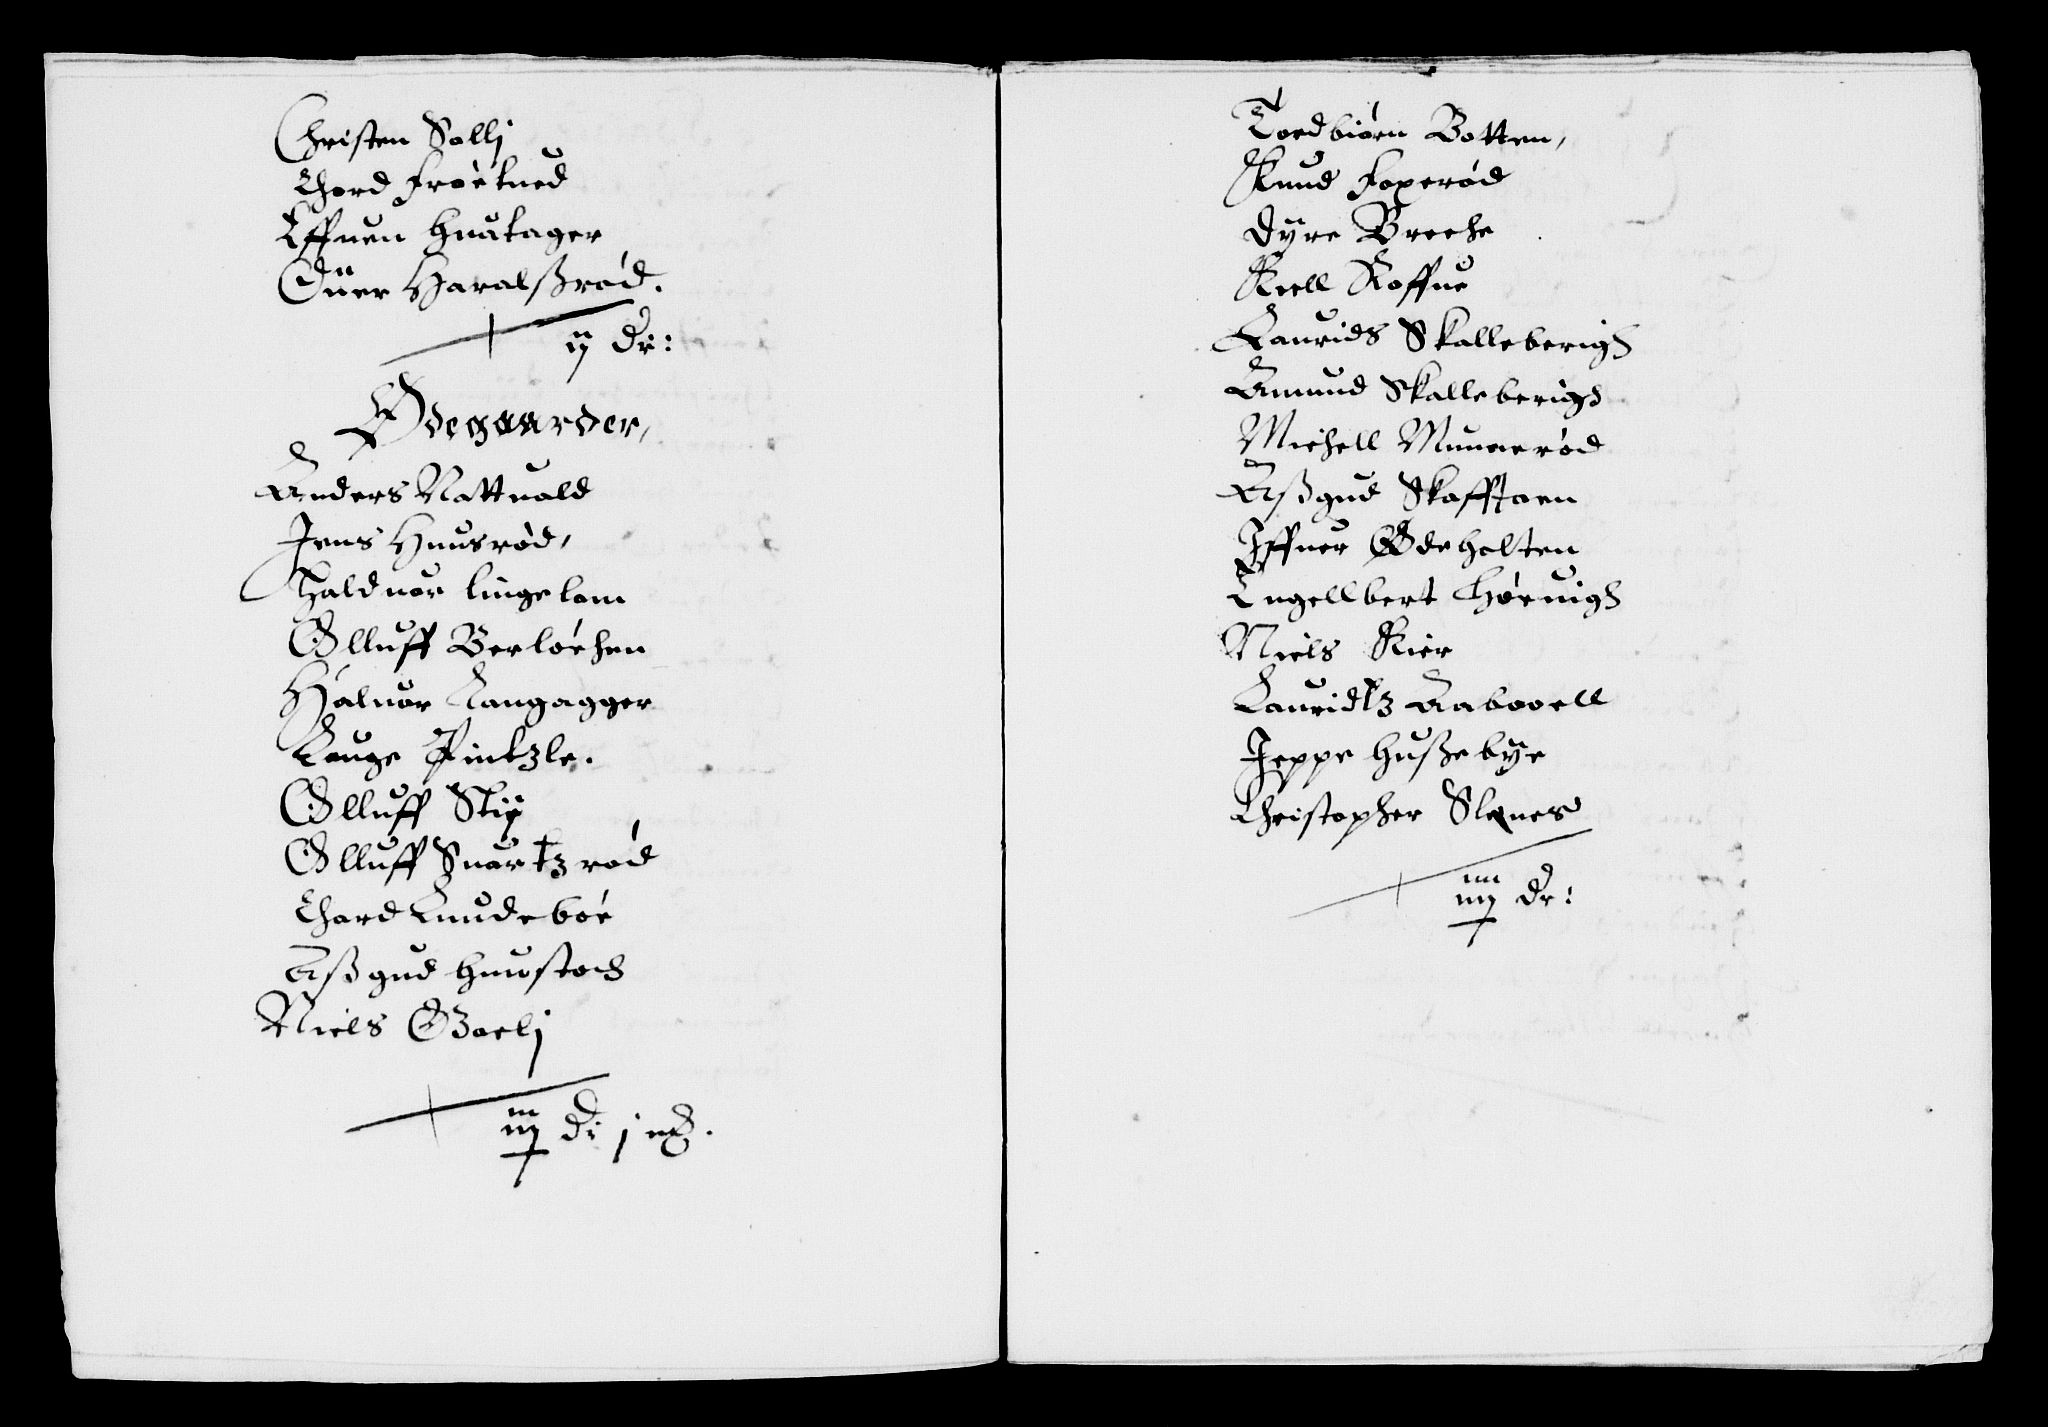 Christen Sollj
Thord Frøetued
Effuen Huatager
Øuer Haralßrød.
ij dr:
Ødegaarder,
Anders Nattuald
Jens Hnusrød,
Halduor Lingelom
Olluff Berløchen
Haluor Langagger
Lauge Pintzle.
Olluff Stij
Olluff Suartzrød
Thord Lundebøe
Aßgud Huustoch
Niels Goelj
iij iij dr j mk.
Tordbiørn Botten,
Knud Foxerød
Dyre Breche
Kiell Roffue
Laurids Skalleberigh
Amund Skalleberigh
Michell Munnerød
Aßgud Skafftoen
Iffuer Ødeholten
Engellbert Høruigh
Niels Kier
Lauridtz Aabooell
Jeppe Hußebye
Christopher Slenes
iiii iiij dr: